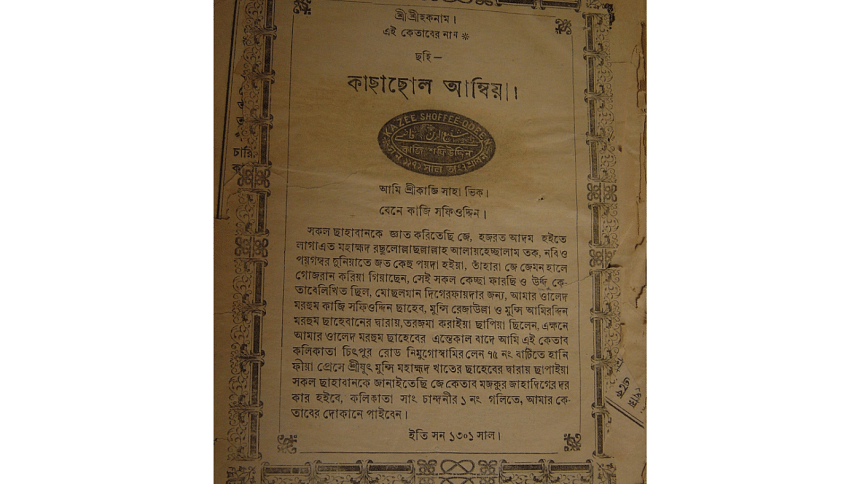 শ্রীশ্রীহকনাম।
এই কেতাবের নাম *
ছহি—
কাছাছোল আম্বিয়া।
KAZEE SHOFFEE OODEEN
কাজি শফিউদ্দিন
আমি শ্রীকাজি সাহা ভিক।
বেনে কাজি সফিওদ্দিন।
সকল ছাহাবানকে জ্ঞাত করিতেছি জে, হজরত আদম হইতে
লাগাএত মহাহ্মদ রছুলোল্লাছাল্লাল্লাহ আলায়হেচ্ছালাম তক, নবি ও
পয়গম্বর দুনিয়াতে জত কেহ পয়দা হইয়া, তাঁহারা জে জেমন হালে
গোজরান করিয়া গিয়াছেন, সেই সকল কেচ্ছা ফারছি ও উর্দ্দু কে-
তাবেলিখিত ছিল, মোছলমান দিগেরফায়দার জন্য, আমার ওালেদ
মরহুম কাজি সফিওদ্দিন ছাহেব, মুন্সি রেজাউল্লা ও মুন্সি আমিরদ্দিন
মরহুম ছাহেবানের দ্বারায়, তরজমা করাইয়া ছাপিয়া ছিলেন, এক্ষনে
আমার ওালেদ মরহুম ছাহেবের এন্তেকাল বাদে আমি এই কেতাব
কলিকাতা চিৎপুর রোড নিমুগোস্বামির লেন ৭৫ নং বাটিতে হানি
ফীয়া প্রেসে শ্রীযুৎ মুন্সি মহাহ্মদ খাতের ছাহেবের দ্বারায় ছাপাইয়া
সকল ছাহাবানকে জানাইতেছি জে কেতাব মজকুর জাহাদিগের দর
কার হইবে, কলিকাতা সাং চান্দনীর ১ নং গলিতে, আমার কে-
তাবের দোকানে পাইবেন।
ইতি সন ১৩০১ সাল।